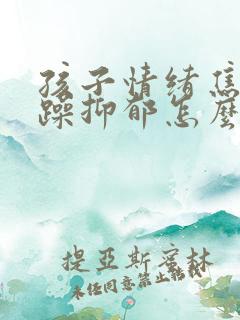 孩子情绪焦
躁抑郁怎么
提亚斯蜜林
未经同意禁止转载